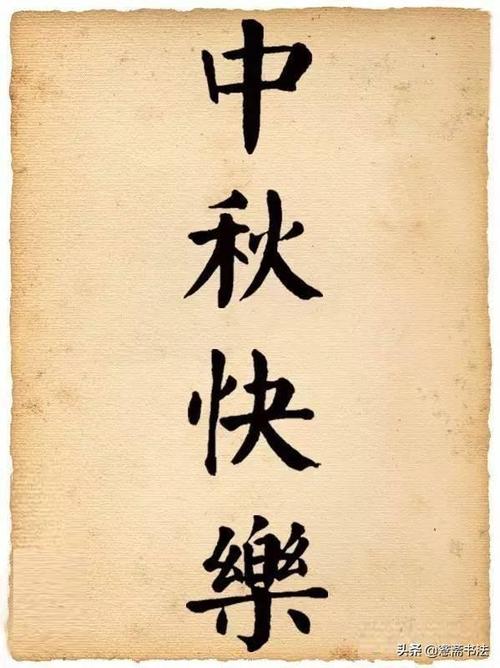 中秋快樂
头条 @懿斋书法